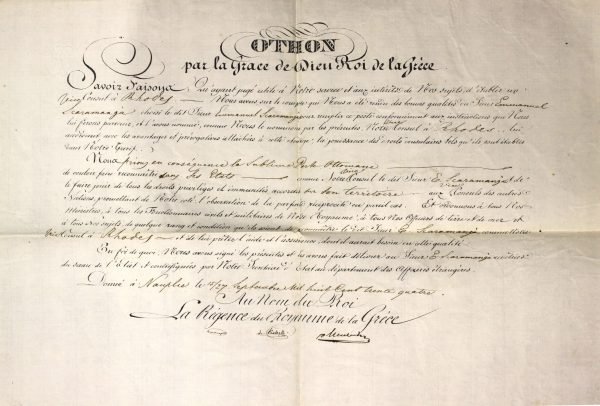 OTHON
par la Grace de Dieu Roi de la Grèce.
Savoir faisons, Qu'ayant jugé utile à Notre service et aux intérêts de Nos sujets d'établir un
Vice Consul à Rhodes Nous avons sur le compte qui Nous a été rendu des bonnes qualités du Sieur Emmanuel
Scaramanga choisi le dit Sieur Emmanuel Scaramanga pour remplir ce poste conformément aux instructions que Nous
lui ferons parvenir, et l'avons nommé, comme Nous le nommons par les présentes, Notre Vice Consul à Rhodes
avec les avantages et prérogatives attachés à cette charge, la jouissance des droits consulaires tels qu'ils sont établis
dans Notre
Nous prions en conséquence la Sublime Porte Ottomane
de vouloir faire reconnaître dans les Etats comme Notre Vice Consul le dit Sieur E. Scaramanga et
le faire jouir de tous les droits privilèges et immunités accordés sur son territoire aux Vice Consuls des autres
Nations, promettant de Notre coté l'observation de la parfaite réciprocité en pareil cas. Et ordonnons à tous Nos
Ministres, à tous les Fonctionnaires civils et militaires de Notre Royaume, à tous Nos Officiers de terre et de mer et
à tous Nos sujets, de quelque rang et condition qu'ils soient de reconnaître le dit Sieur E. Scaramanga comme Notre
Vice Consul à Rhodes et de lui prêter l'aide et l'assistance dont il aurait besoin en cette qualité.
En foi de quoi, Nous avons signé les présentes et les avons fait délivrer au Sieur E. Scaramanga
du sceau de l'Etat et contresignées par Notre Secrétaire d'Etat au département des Affaires étrangères.
Donné à Nauplie le 15/27 Septembre Mil huit Cent trente quatre.
Au Nom du Roi
La Régence du Royaume de la Grèce